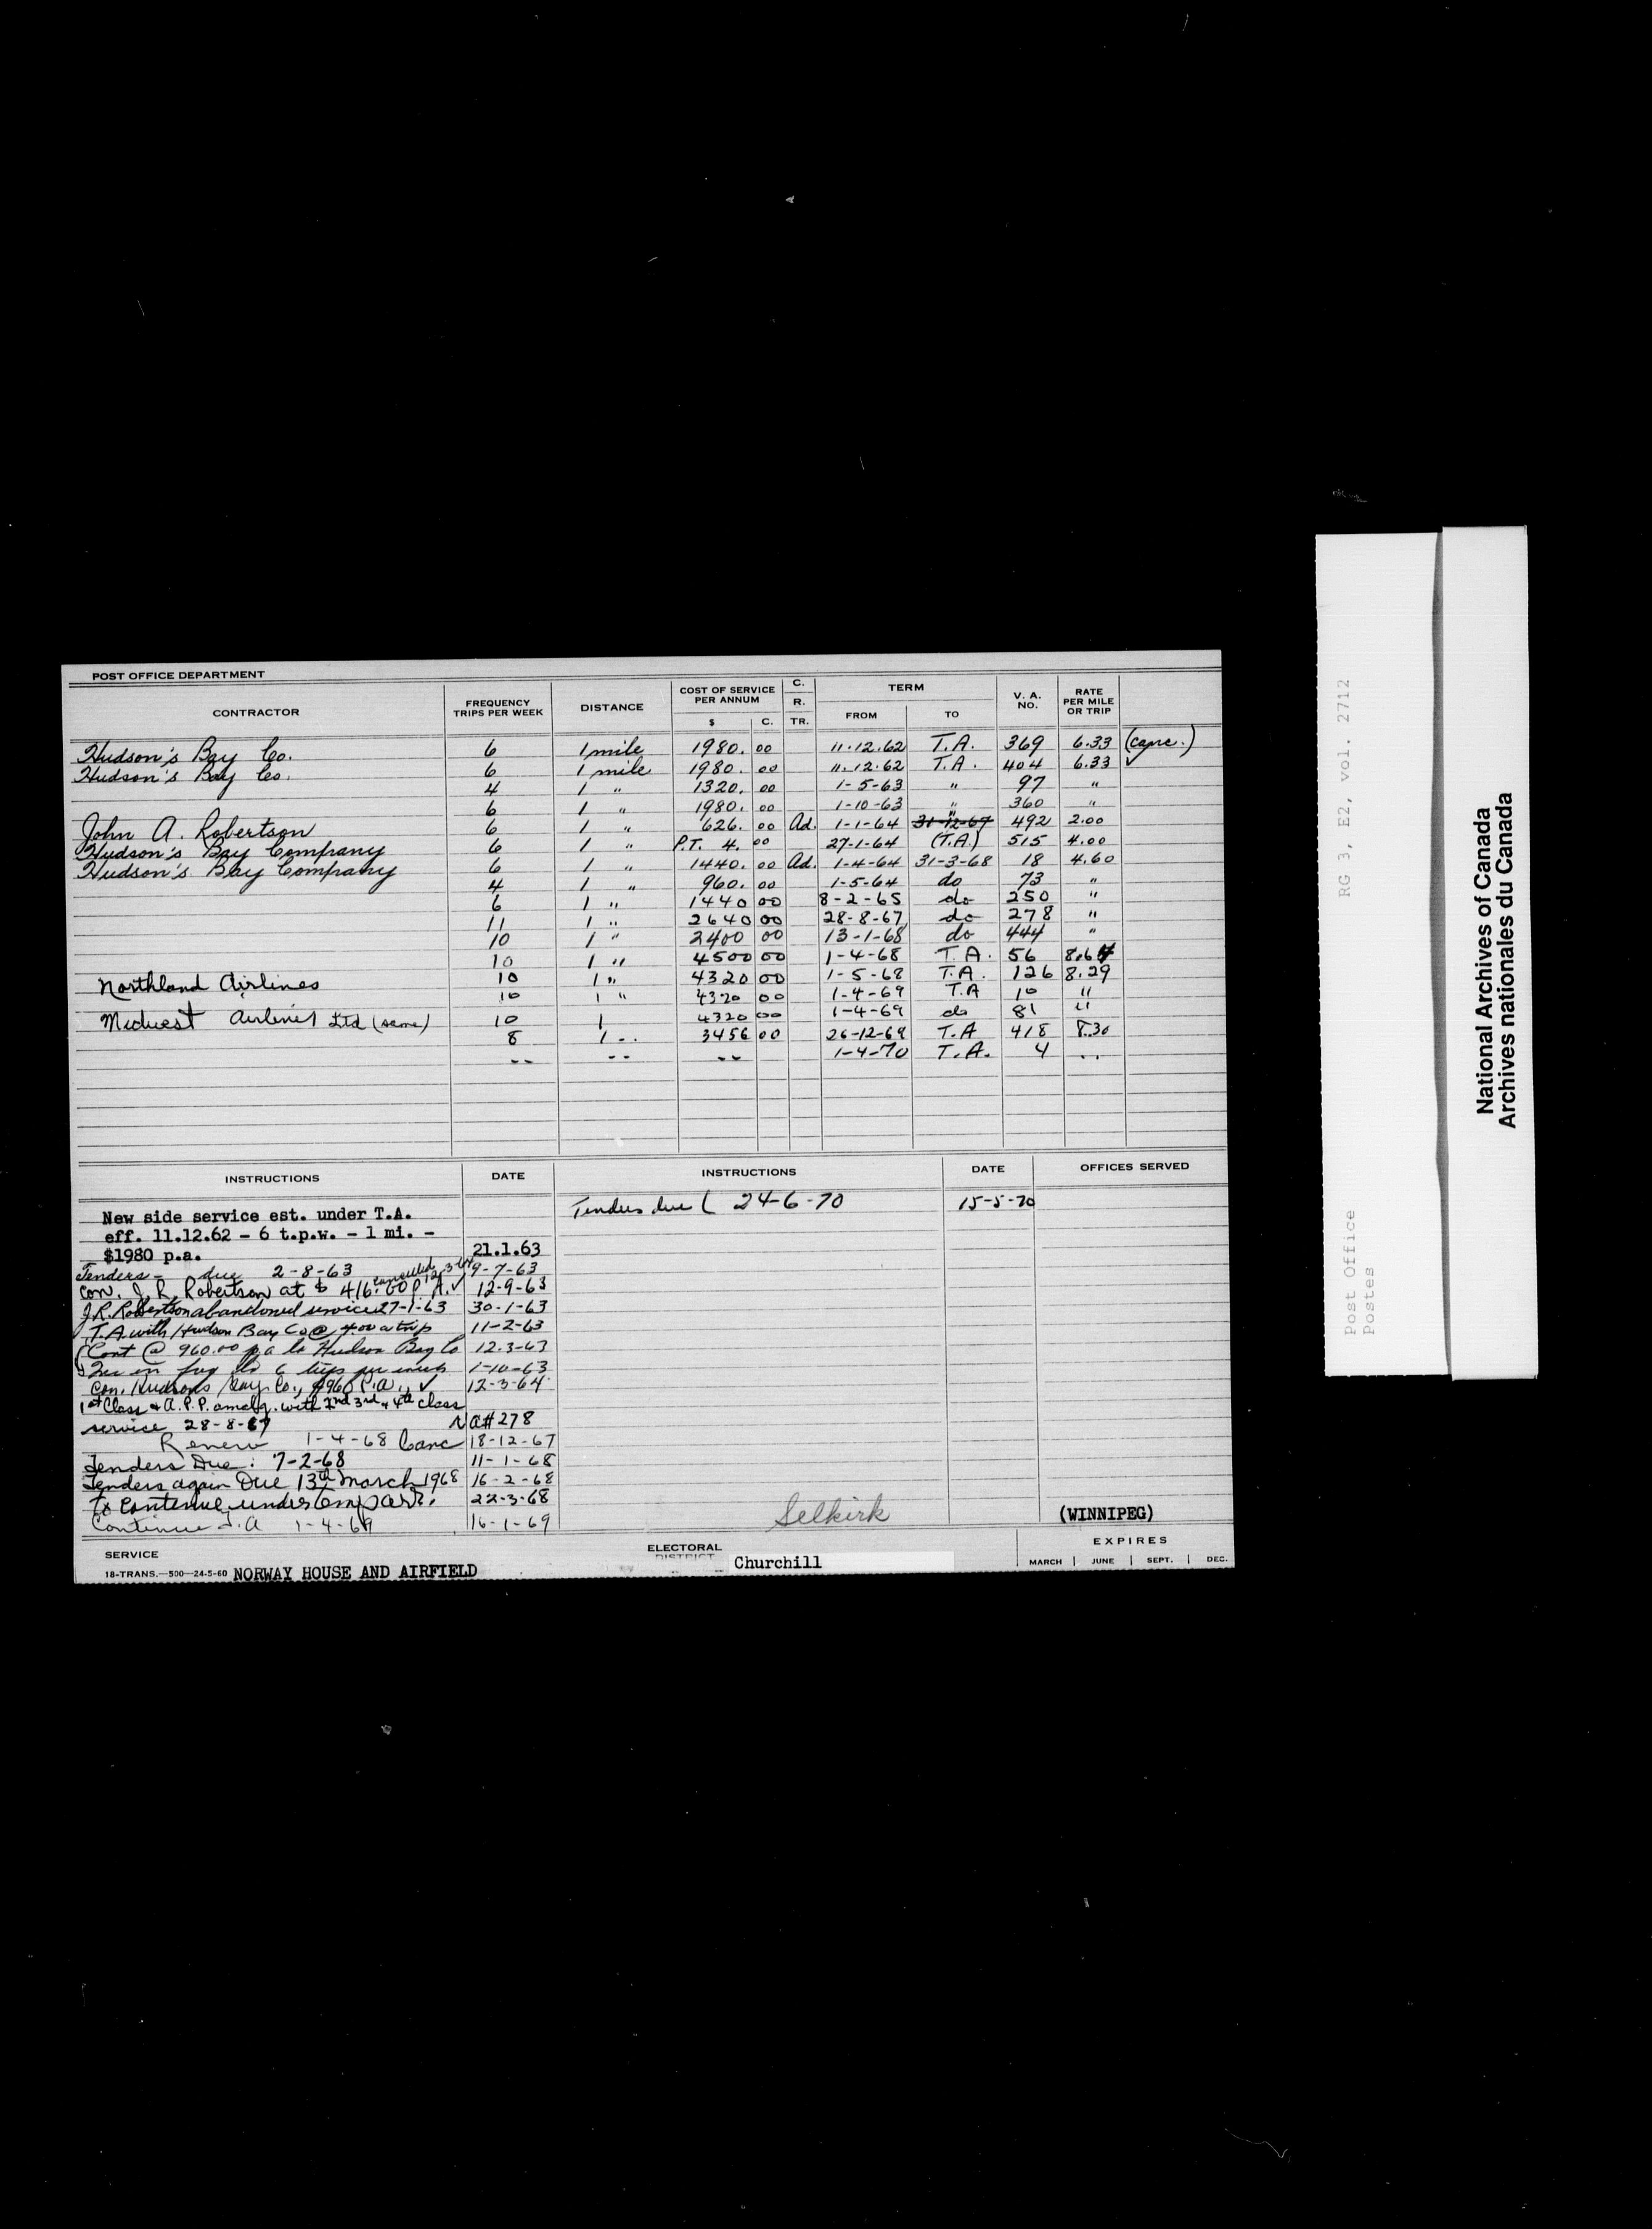 POST OFFICE DEPARTMENT
CONTRACTOR FREQUENCY TRIPS PER WEEK DISTANCE COST OF SERVICE PER ANNUM $ C. C. R. TR. TERM FROM TO V. A. NO. RATE PER MILE OR TRIP
Hudson's Bay Co. 6 1 mile 1980. 00 11.12.62 T.A. 369 6.33 (canc.)
Hudson's Bay Co. 6 1 mile 1980. 00 11.12.62 T.A. 404 6.33 ✓
4 1 " 1320. 00 1-5-63 " 97 "
6 1 " 1980. 00 1-10-63 " 360 "
John A. Robertson 6 1 " 626. 00 Ad. 1-1-64 31-12-67 492 2.00
Hudson's Bay Company 6 1 " P.T. 4. 00 27-1-64 (T.A.) 515 4.00
Hudson's Bay Company 6 1 " 1440. 00 Ad. 1-4-64 31-3-68 18 4.60
4 1 " 960. 00 1-5-64 do 73 "
6 1 " 1440 00 8-2-65 do 250 "
11 1 " 2640 00 28-8-67 do 278 "
10 1 " 2400 00 13-1-68 do 444 "
10 1 " 4500 00 1-4-68 T.A. 56 8.64
Northland Airlines 10 1 " 4320 00 1-5-68 T.A. 126 8.29
10 1 " 4320 00 1-4-69 T.A 10 "
Midwest Airlines Ltd (same) 10 1 4320 00 1-4-69 do 81 "
8 1 .. 3456 00 26-12-69 T.A 418 8.30
-- -- -- 1-4-70 T.A. 4 ..
INSTRUCTIONS DATE INSTRUCTIONS DATE OFFICES SERVED
Tenders due ( 24-6-70 15-5-70
New side service est. under T.A.
eff. 11.12.62 - 6 t.p.w. - 1 mi. -
$1980 p.a. 21.1.63
Tenders - due 2-8-63 9-7-63
cancelled
con. J. R. Robertson at $ 416.00 P.A. ✓ 12-9-63
J.R. Robertson abandoned service 27-1-63 30-1-63
T.A. with Hudson Bay Co @ 4.00 a trip 11-2-63
(Cont @ 960.00 p.a to Hudson Bay Co 12.3-63
Inc in to 6 trips per week 1-10-63
con. Hudsons Bay Co., $960 P.A., ✓ 12-3-64
1st Class & A.P.P. amalg. with 2nd 3rd & 4th class
service 28-8-67 VA# 278
Renew 1-4-68 Canc 18-12-67
Tenders Due: 7-2-68 11-1-68
Tenders again Due 13th March 1968 16-2-68
To continue under temp arr. 22-3-68
Continue T.A 1-4-69 16-1-69
Selkirk
(WINNIPEG)
SERVICE ELECTORAL DISTRICT Churchill EXPIRES
MARCH JUNE SEPT. DEC.
18-TRANS.—500—24-5-60 NORWAY HOUSE AND AIRFIELD
RG 3, E2, vol. 2712
Post Office
Postes
National Archives of Canada
Archives nationales du Canada